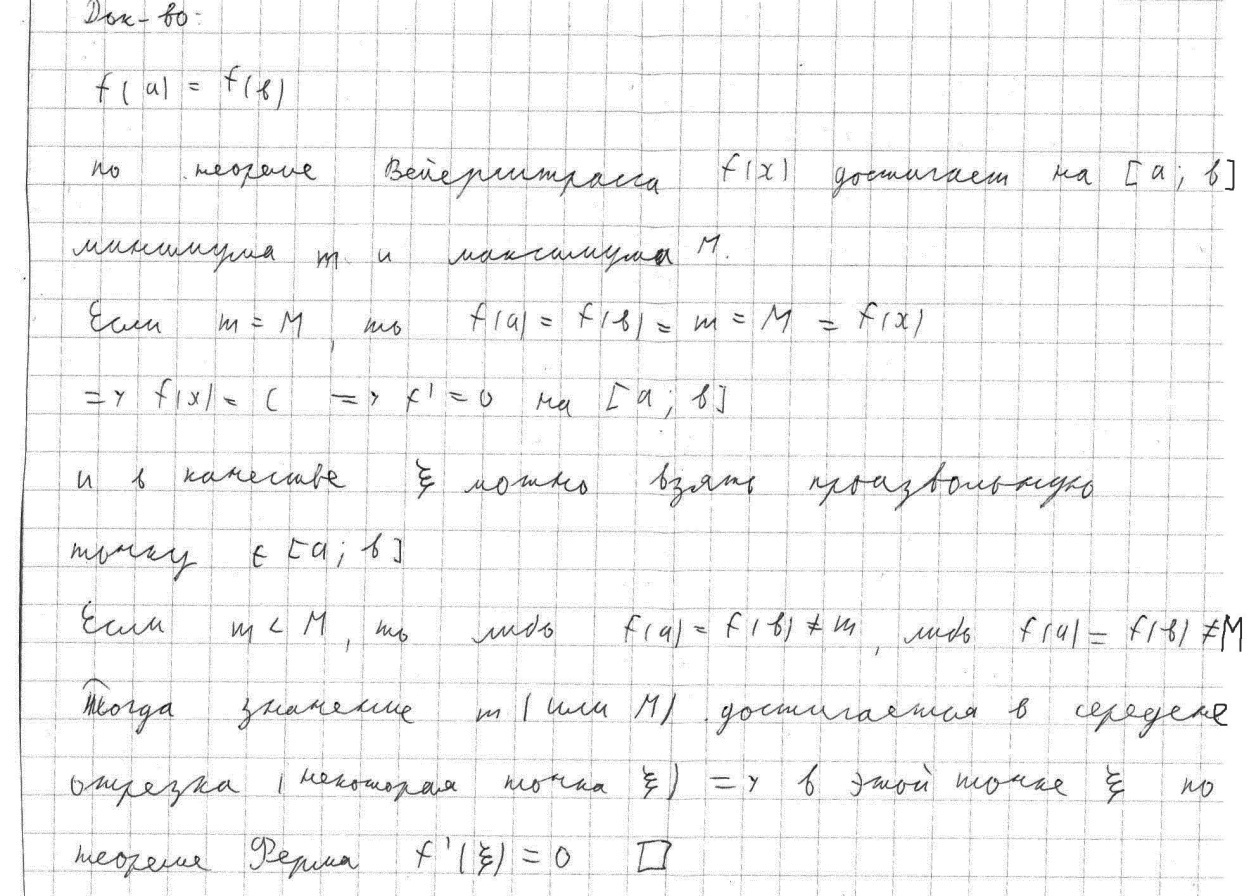 Док-во:
f(a) = f(b)
по теореме Вейерштрасса f(x) достигает на [a; b]
минимума m и максимума M.
Если m = M, то f(a) = f(b) = m = M = f(x)
=> f(x) = C => f' = 0 на [a; b]
и в качестве ξ можно взять произвольную
точку ∈ [a; b]
Если m < M, то либо f(a) = f(b) ≠ m, либо f(a) = f(b) ≠ M
Тогда значение m (или M) достигается в середене
отрезка (некоторая точка ξ) => в этой точке ξ по
теореме Ферма f'(ξ) = 0 □